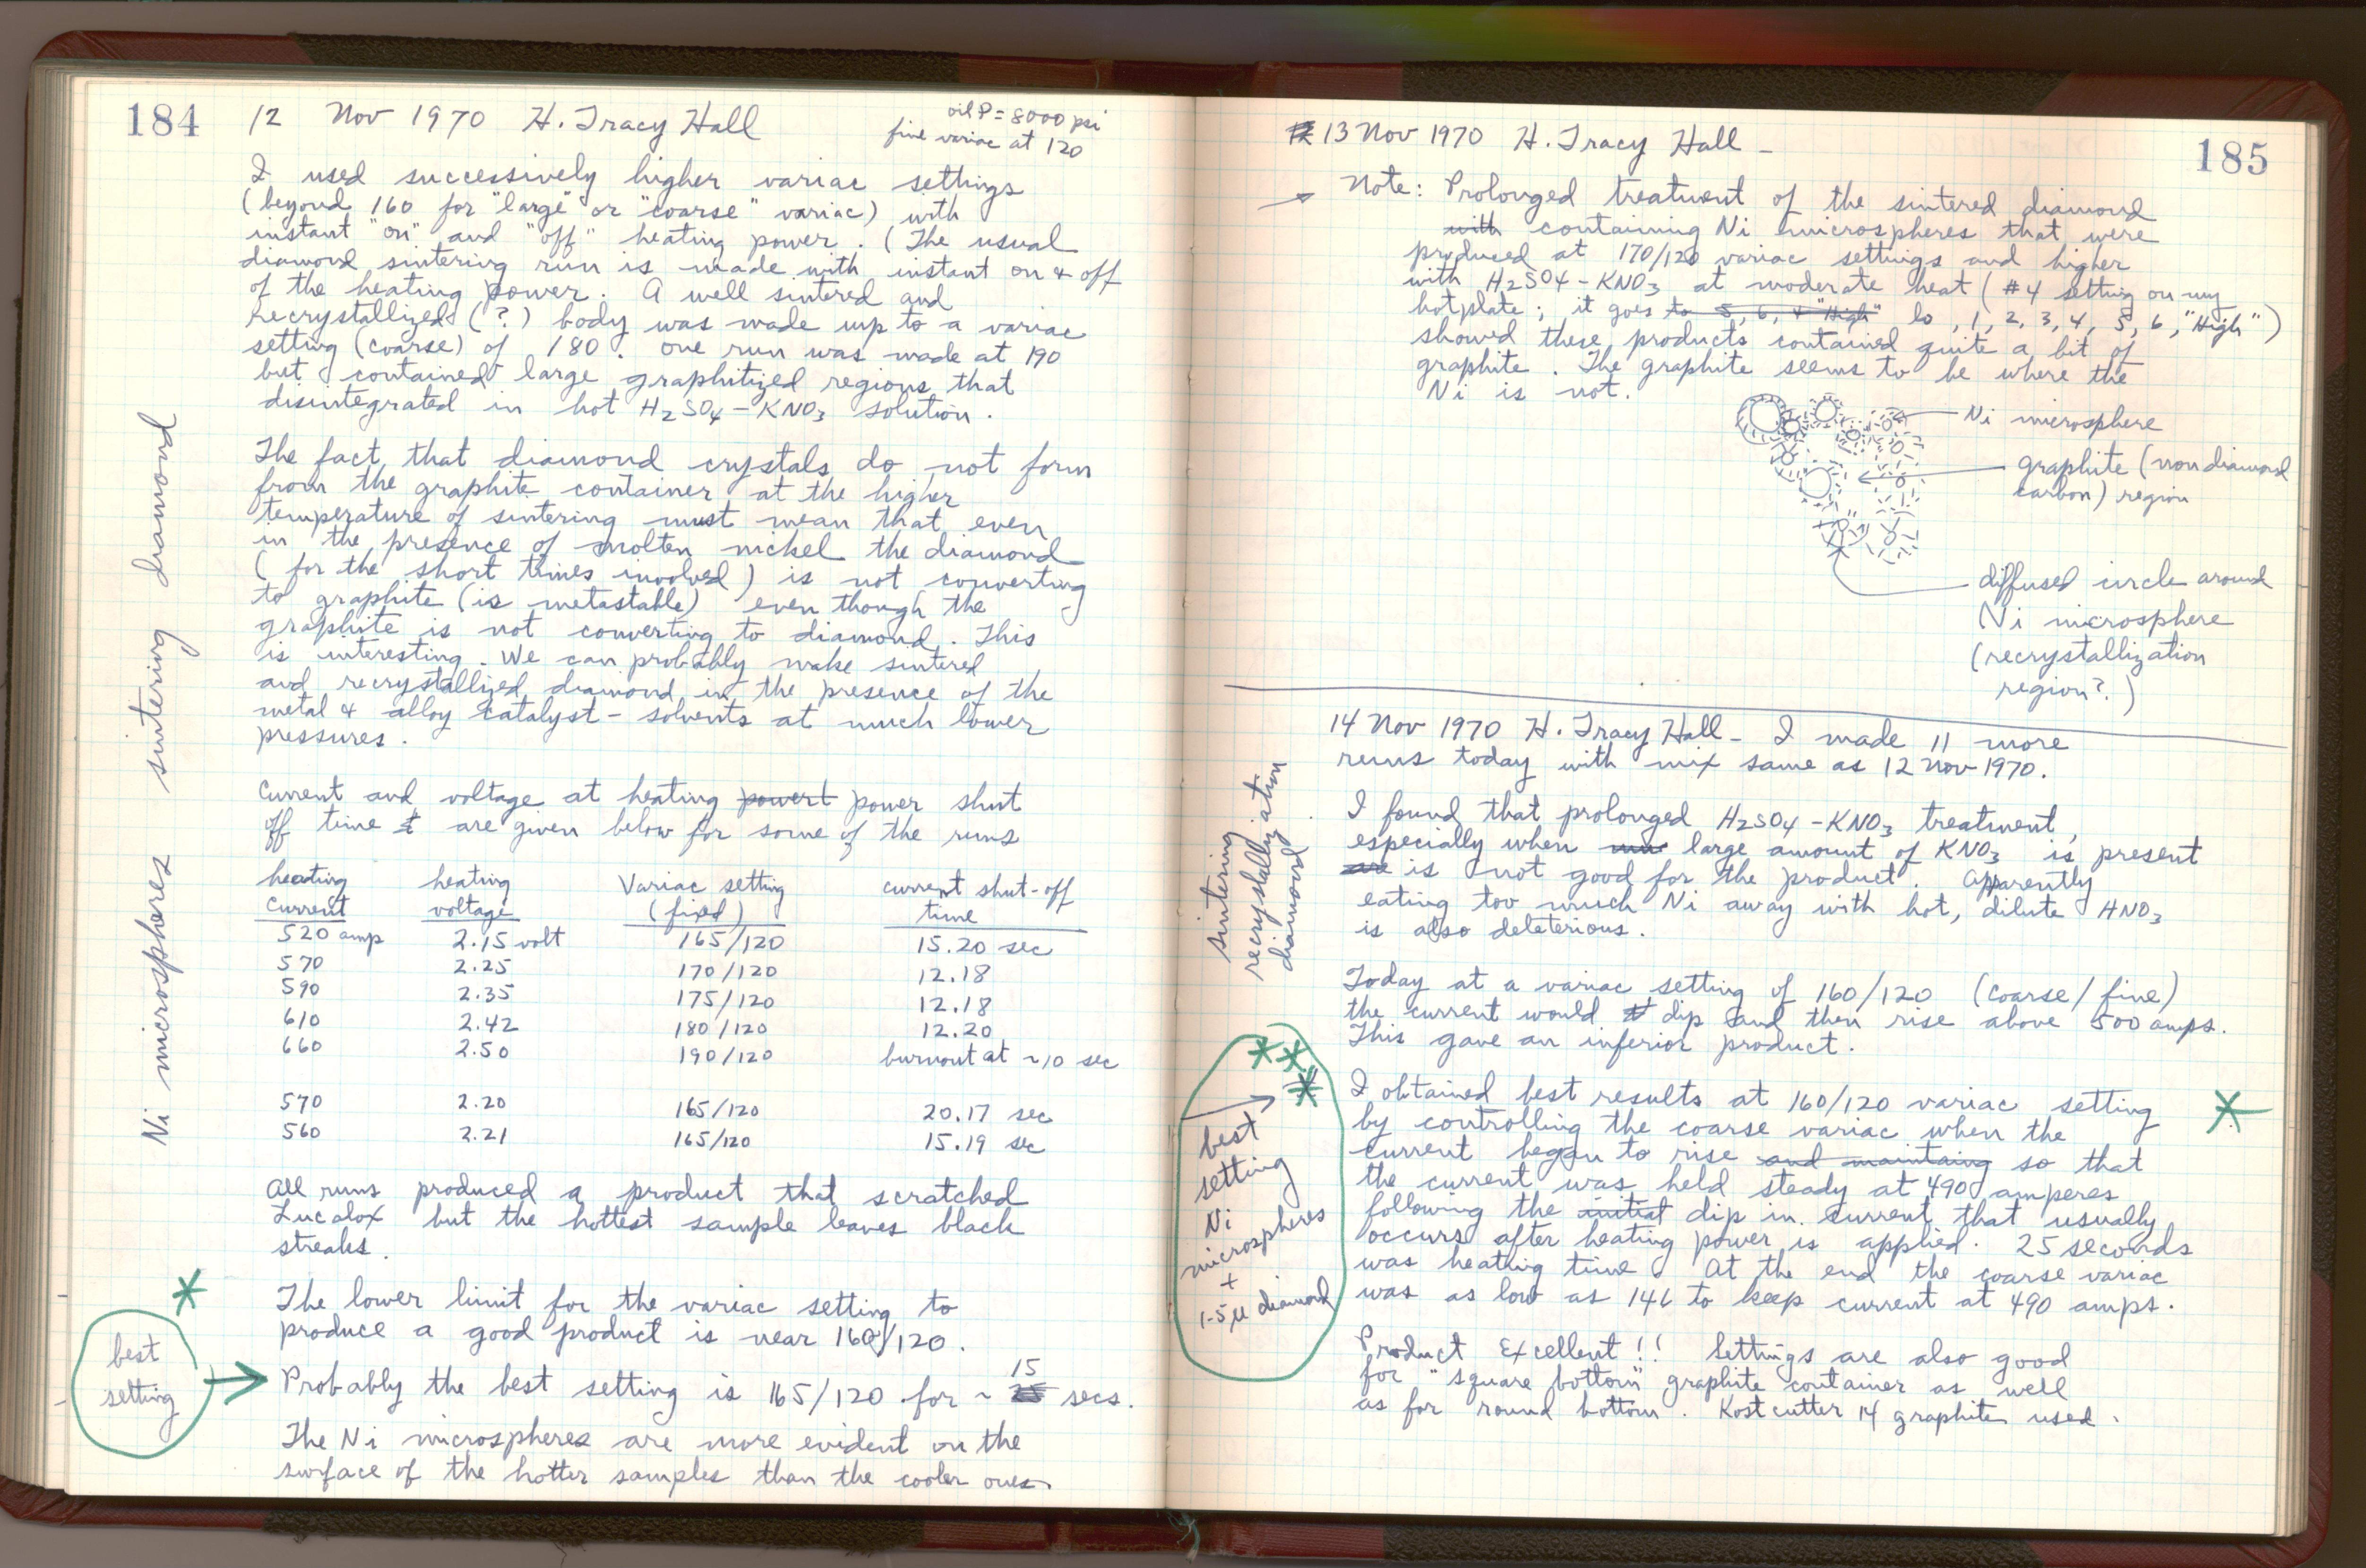 184
12 Nov 1970 H. Tracy Hall
oil P = 8000 psi
fine variac at 120
I used successively higher variac settings
(beyond 160 for "large" or "coarse" variac) with
instant "on" and "off" heating power. (The usual
diamond sintering run is made with instant on & off
of the heating power. A well sintered and
recrystallized (?) body was made up to a variac
setting (coarse) of 180. one run was made at 190
but contained large graphitized regions that
disintegrated in hot H2SO4-KNO3 solution.
The fact that diamond crystals do not form
from the graphite container at the higher
temperature of sintering must mean that even
in the presence of molten nickel the diamond
(for the short times involved) is not converting
to graphite (is metastable) even though the
graphite is not converting to diamond. This
is interesting. We can probably make sintered
and recrystallized diamond in the presence of the
metal & alloy catalyst-solvents at much lower
pressures.
Current and voltage at heating powert power shut
off time are given below for some of the runs
heating heating Variac setting current shut-off
current voltage (fixed) time
520 amp 2.15 volt 165/120 15.20 sec
570 2.25 170/120 12.18
590 2.35 175/120 12.18
610 2.42 180/120 12.20
660 2.50 190/120 burnout at ~10 sec
570 2.20 165/120 20.17 sec
560 2.21 165/120 15.19 sec
All runs produced a product that scratched
Lucalox but the hottest sample leaves black
streaks.
The lower limit for the variac setting to
produce a good product is near 160/120.
best
setting
15
Probably the best setting is 165/120 for ~ secs.
The Ni microspheres are more evident on the
surface of the hotter samples than the cooler ones.
Ni microspheres sintering diamond
185
13 Nov 1970 H. Tracy Hall -
Note: Prolonged treatment of the sintered diamond
with containing Ni microspheres that were
produced at 170/120 variac settings and higher
with H2SO4-KNO3 at moderate heat (#4 setting on my
hotplate; it goes to 5, 6, & "High" lo, 1, 2, 3, 4, 5, 6, "High")
showed these products contained quite a bit of
graphite. The graphite seems to be where the
Ni is not.
Ni microsphere
graphite (non diamond
carbon) region
diffused circle around
Ni microsphere
(recrystallization
region?)
14 Nov 1970 H. Tracy Hall - I made 11 more
runs today with mix same as 12 Nov 1970.
sintering
recrystallization
diamond
I found that prolonged H2SO4-KNO3 treatment,
especially when large amount of KNO3 is present
are is not good for the product. Apparently
eating too much Ni away with hot, dilute HNO3
is also deleterious.
Today at a variac setting of 160/120 (coarse/fine)
the current would dip and then rise above 500 amps.
This gave an inferior product.
best
setting
Ni
microspheres
+
1-5μ diamond
I obtained best results at 160/120 variac setting
by controlling the coarse variac when the
current began to rise and maintaing so that
the current was held steady at 490 amperes
following the initial dip in current that usually
occurs after heating power is applied. 25 seconds
was heating time. At the end the coarse variac
was as low as 146 to keep current at 490 amps.
Product Excellent!! Settings are also good
for "square bottom" graphite container as well
as for round bottom. Kostcutter 14 graphite used.